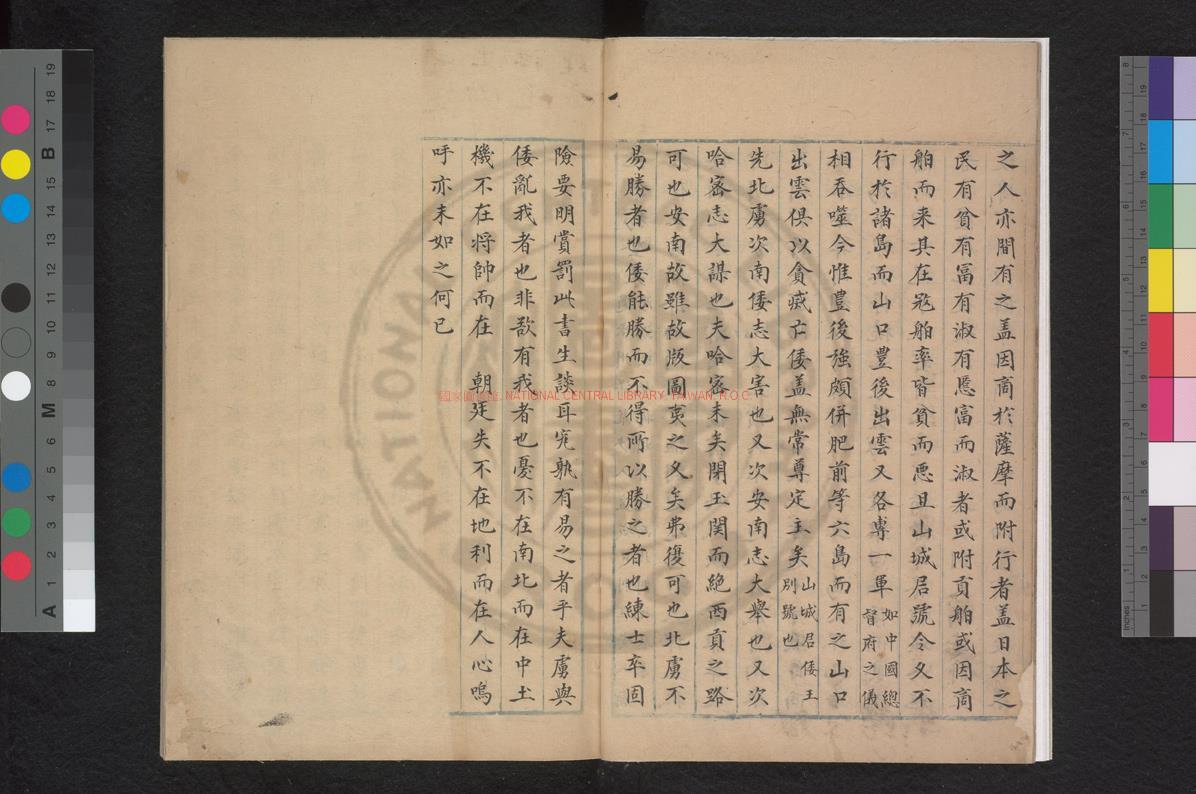 之人亦間有之盖因商於薩摩而附行者盖日本之
民有貧有富有淑有慝富而淑者或附貢舶或因商
舶而来其在㓂舶率皆貧而悪且山城君號令久不
行於諸島而山口豊後出雲又各專一軍如中國總督府之儀
相吞噬今惟豊後強頗併肥前等六島而有之山口
出雲俱以貪㓕亡倭盖無常尊定主矣山城君倭王別號也
先北虜次南倭志大害也又次安南志大舉也又次
哈密志大謀也夫哈密未矣閉玉関而絶西貢之路
可也安南故雖故版圖夷之久矣弗復可也北虜不
易勝者也倭能勝而不得所以勝之者也練士卒固
險要明賞罰此書生談耳完孰有易之者乎夫虜與
倭亂我者也非㰱有我者也憂不在南北而在中土
機不在将帥而在 朝廷失不在地利而在人心嗚
呼亦未如之何已
國家圖書館, NATIONAL CENTRAL LIBRARY, TAIWAN, R.O.C